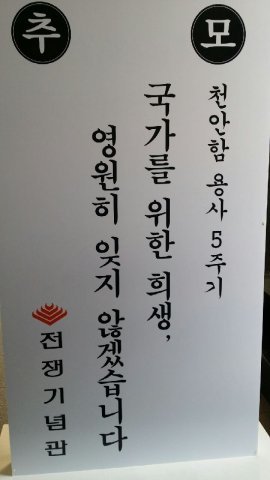 추 모
천안함 용사 5주기
국가를 위한 희생,
영원히 잊지 않겠습니다
전쟁기념관